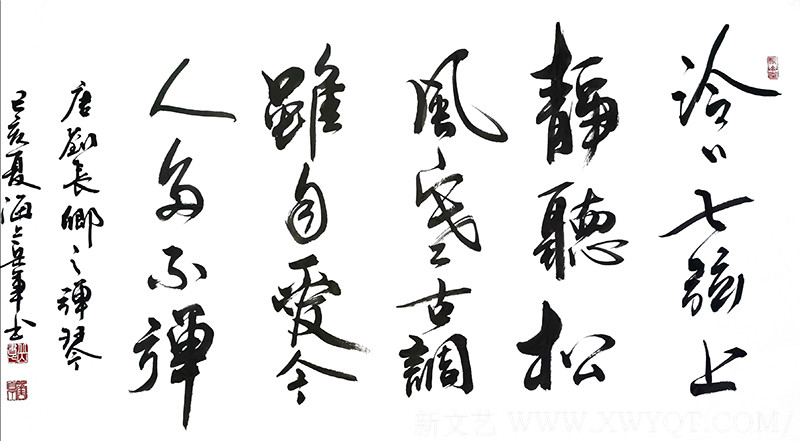 泠〻七弦上
靜聽松
風寒古調
雖自愛今
人多不彈
唐劉長卿之彈琴
己亥夏海上軍书
新文艺 WWW.XWYQT.COM/